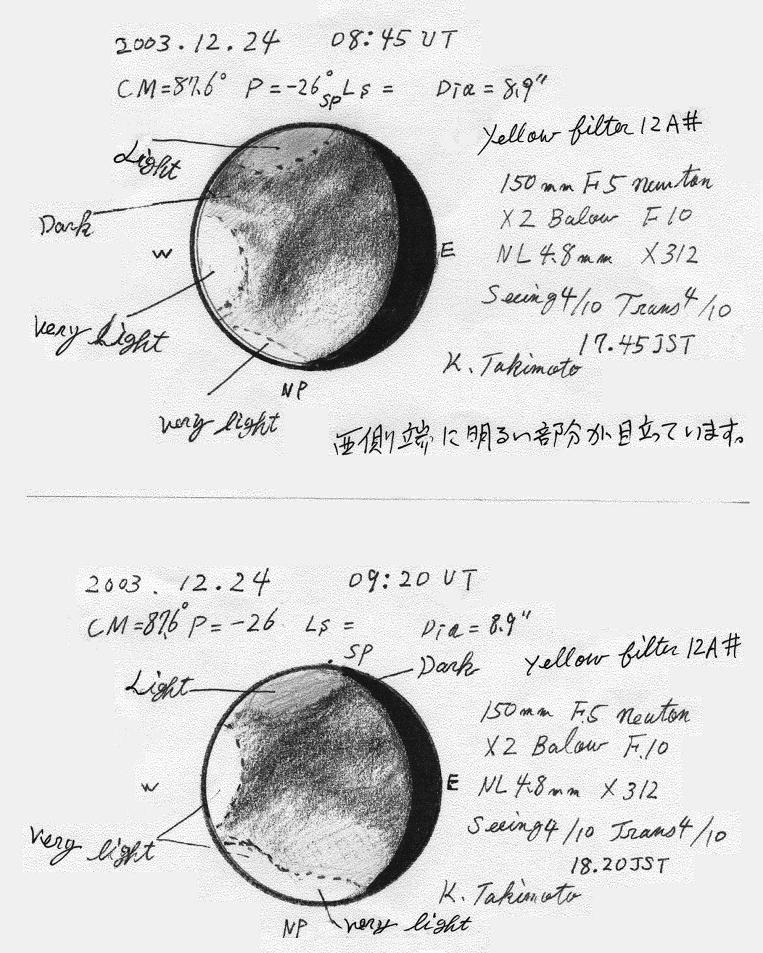 2003.12.24 08:45 UT
CM=87.6° P=-26° Ls = Dia = 8.9"
SP
Yellow filter 12A#
Light
150mm F.5 newton
Dark
X2 Balow F.10
W
E
NL 4.8mm X312
Very Light
Seeing 4/10 Trans 4/10
17.45 JST
K. Takimoto
NP
very light
西側端に明るい部分が目立っています。
2003.12.24 09:20 UT
CM=87.6° P=-26 Ls = Dia = 8.9"
SP
Dark
Yellow filter 12A#
Light
150mm F.5 newton
X2 Balow F.10
W
E
NL 4.8mm X312
Very light
Seeing 4/10 Trans 4/10
18.20 JST
K. Takimoto
NP
very light